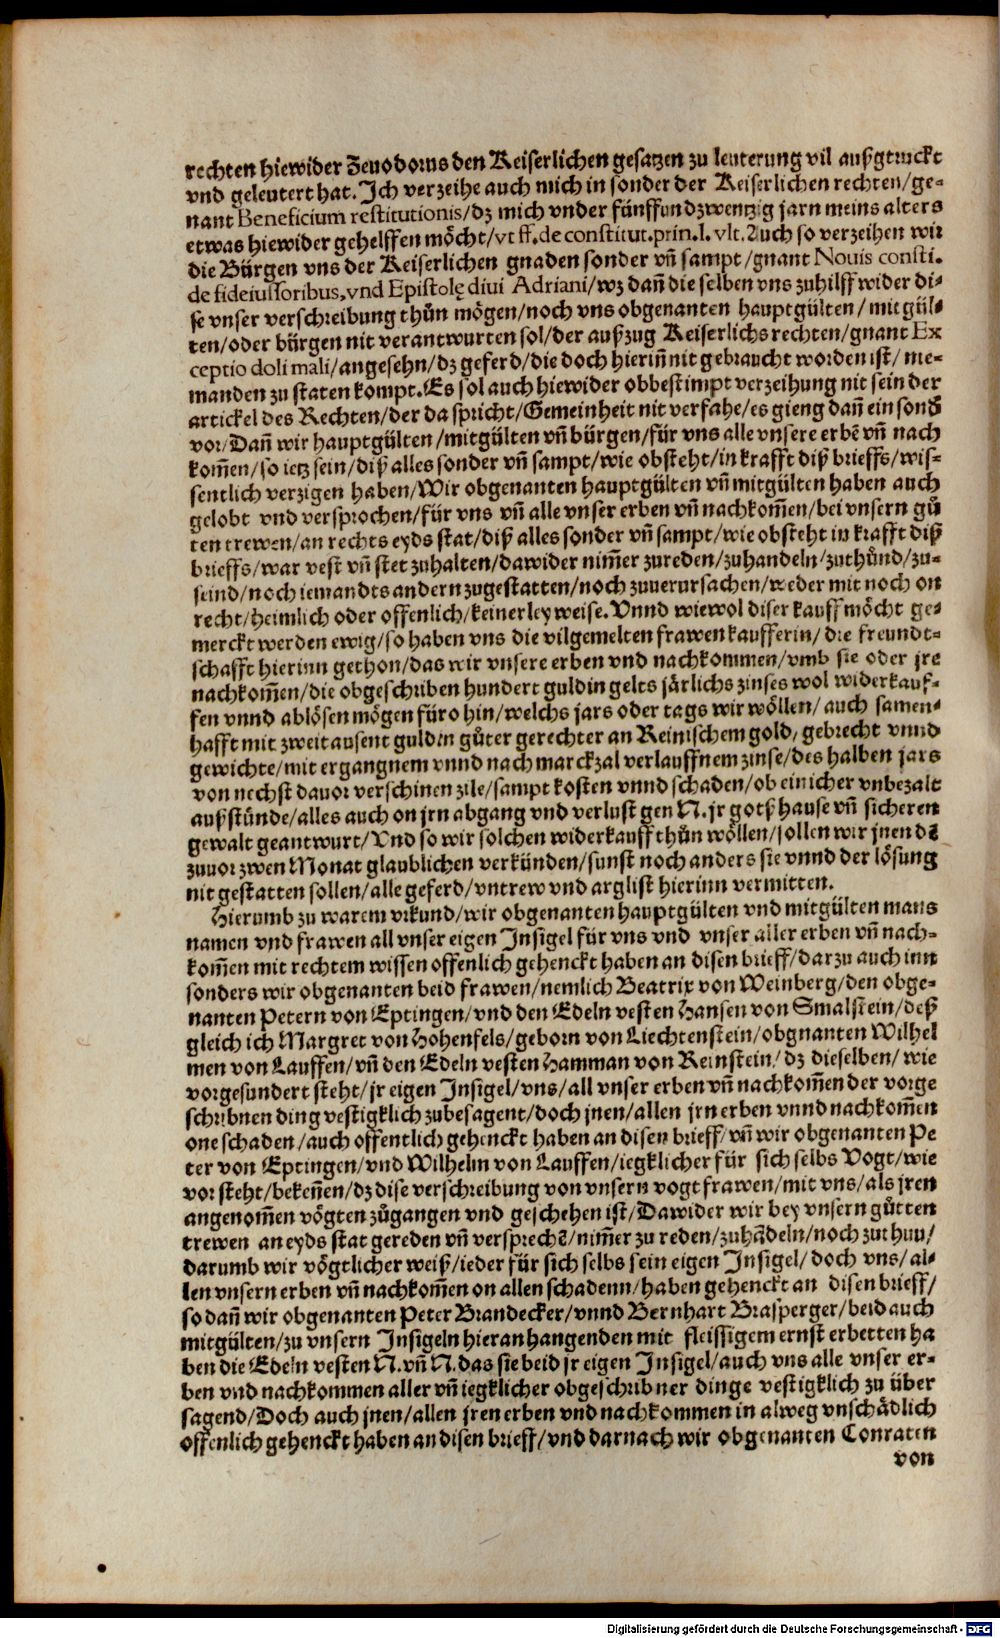 rechten hiewider Zeuodorus den Keiserlichen gesatzen zu leuterung vil außgtruckt
vnd geleutert hat. Ich verzeihe auch mich in sonder der Keiserlichen rechten/ge-
nant Beneficium restitutionis/dz mich vnder fünffundzwentzig jarn meins alters
etwas hiewider gehelffen möcht/vt ff. de constitut. prin. l. vlt. Auch so verzeihen wir
die Bürgen vns der Keiserlichen gnaden sonder vñ sampt/gnant Nouis consti.
de fideiussoribus, vnd Epistolę diui Adriani/wz dañ die selben vns zuhilff wider di-
se vnser verschreibung thůn mögen/noch vns obgenanten hauptgülten/mitgül-
ten/oder bürgen nit verantwurten sol/der außzug Keiserlichs rechten/gnant Ex
ceptio doli mali/angesehn/dz geferd/die doch hieriñ nit gebraucht worden ist/nie-
manden zu staten kompt. Es sol auch hiewider obbestimpt verzeihung nit sein der
artickel des Rechten/der da spricht/Gemeinheit nit verfahe/es gieng dañ ein sond̃
vor/Dañ wir hauptgülten/mitgülten vñ bürgen/für vns alle vnsere erbẽ vñ nach
kom̃en/so ietz sein/diß alles sonder vñ sampt/wie obsteht/in krafft diß brieffs/wis-
sentlich verzigen haben/Wir obgenanten hauptgülten vñ mitgülten haben auch
gelobt vnd versprochen/für vns vñ alle vnser erben vñ nachkom̃en/bei vnsern gů
ten trewen/an rechts eyds stat/diß alles sonder vñ sampt/wie obsteht in krafft diß
brieffs/war vest vñ stet zuhalten/dawider nim̃er zureden/zuhandeln/zuthůnd/zu-
seind/noch iemandts andern zugestatten/noch zuuerursachen/weder mit noch on
recht/heimlich oder offenlich/keinerley weise. Vnnd wiewol diser kauff möcht ge-
merckt werden ewig/so haben vns die vilgemelten frawen kaufferin/die freundt-
schafft hierinn gethon/das wir vnsere erben vnd nachkommen/vmb sie oder jre
nachkom̃en/die obgeschriben hundert guldin gelts järlichs zinses wol widerkauf-
fen vnnd ablösen mögen füro hin/welchs jars oder tags wir wöllen/auch samen-
hafft mit zweitausent guldin gůter gerechter an Reinischem gold, gebrecht vnnd
gewichte/mit ergangnem vnnd nach marckzal verlauffnem zinse/des halben jars
von nechst dauor verschinen zile/sampt kosten vnnd schaden/ob einicher vnbezalt
außstünde/alles auch on jrn abgang vnd verlust gen N. jr gotßhause vñ sicheren
gewalt geantwurt/Vnd so wir solchen widerkauff thůn wöllen/sollen wir jnen dẽ
zuuor zwen Monat glaublichen verkünden/sunst noch anders sie vnnd der lösung
nit gestatten sollen/alle geferd/vntrew vnd arglist hierinn vermitten.
Hierumb zu warem vrkund/wir obgenanten hauptgülten vnd mitgülten mans
namen vnd frawen all vnser eigen Insigel für vns vnd vnser aller erben vñ nach-
kom̃en mit rechtem wissen offenlich gehenckt haben an disen brieff/darzu auch inn
sonders wir obgenanten beid frawen/nemlich Beatrix von Weinberg/den obge-
nanten Petern von Eptingen/vnd den Edeln vesten Hansen von Smalstein/deß
gleich ich Margret von Hohenfels/geborn von Liechtenstein/obgnanten Wilhel
men von Lauffen/vñ den Edeln vesten Hamman von Reinstein/dz dieselben/wie
vorgesundert steht/jr eigen Insigel/vns/all vnser erben vñ nachkom̃en der vorge
schribnen ding vestigklich zubesagent/doch jnen/allen jrn erben vnnd nachkom̃en
one schaden/auch offentlich gehenckt haben an disen brieff/vñ wir obgenanten Pe
ter von Eptingen/vnd Wilhelm von Lauffen/iegklicher für sich selbs Vogt/wie
vor steht/bekeñen/dz dise verschreibung von vnsern vogtfrawen/mit vns/als jren
angenom̃en vögten zůgangen vnd geschehen ist/Dawider wir bey vnsern gůtten
trewen an eyds stat gereden vñ versprechẽ/nim̃er zu reden/zuhãdeln/noch zuthun/
darumb wir vögtlicher weiß/ieder für sich selbs sein eigen Insigel/doch vns/al-
len vnsern erben vñ nachkom̃en on allen schadenn/haben gehenckt an disen brieff/
so dañ wir obgenanten Peter Brandecker/vnnd Bernhart Brasperger/beid auch
mitgülten/zu vnsern Insigeln hieran hangenden mit fleissigem ernst erbetten ha
ben die Edeln vesten N. vñ N. das sie beid jr eigen Insigel/auch vns alle vnser er-
ben vnd nachkommen aller vñ iegklicher obgeschribner dinge vestigklich zu über
sagend/Doch auch jnen/allen jren erben vnd nachkommen in alweg vnschädlich
offenlich gehenckt haben an disen brieff/vnd darnach wir obgenanten Conraten
von
Digitalisierung gefördert durch die Deutsche Forschungsgemeinschaft - DFG